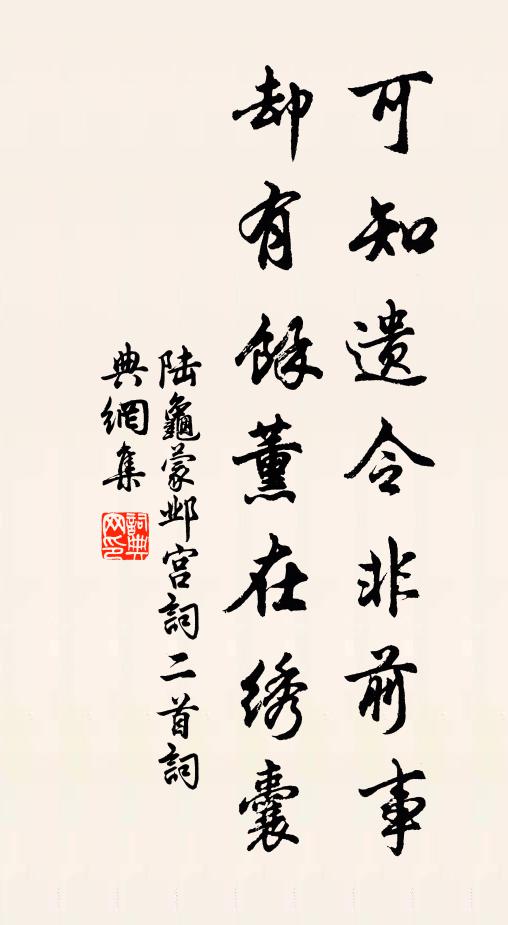 可知遺令非前事
却有餘薰在绣囊
陸龜蒙邺宫詞二首詞
典網集
詞典
网印